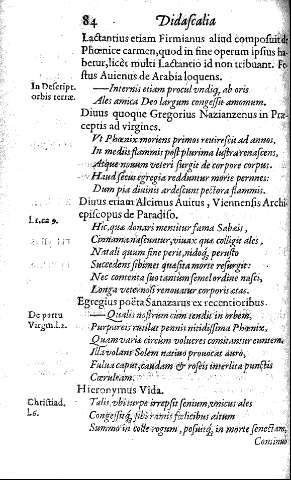 84 Didascalia
Lactantius etiam Firmianus aliud composuit de
Phœnice carmen, quod in fine operum ipsius ha-
betur, licet multi Lactantio id non tribuant. Fe-
stus Auienus de Arabia loquens.
In Descript. orbis terræ.
——Internis etiam procul vndiq, ab oris
Ales amica Deo largum congessit amomum.
Diuus quoque Gregorius Nazianzenus in Præ-
ceptis ad virgines.
Vt Phœnix moriens primos reuirescit ad annos,
In medijs flammis post plurima lustra renascens,
Atque nouum veteri surgit de corpore corpus.
Haud secus egregia redduntur morte perennes:
Dum pia diuinis ardescunt pectora flammis.
Diuus etiam Alcimus Auitus, Viennensis Archi-
episcopus de Paradiso.
L1. ca 9.
Hic, quæ donari mentitur fama Sabæis,
Cinnama nascuntur, viuax quæ colligit ales,
Natali quum fine perit, nidoq, perusto
Succedens sibimet quæsita morte resurgit:
Nec contenta suo tantum semel ordine nasci,
Longa veternosi renouatur corporis ætas.
Egregius poëta Sanazarus ex recentioribus.
De partu Virgin. l. 2.
——Qualis nostrum cum tendit in orbem,
Purpureis rutilat pennis nitidissima Phœnix,
Quam variæ circum volucres comitantur euntem
Illa volans Solem natiuo prouocat auro,
Fulua caput, caudam & roseis interlita punctis
Cœruleam.
Hieronymus Vida.
Christiad. l. 6.
Talis, vbi turpe irrepsit senium, vnicus ales
Congessitq, sibi ramis fœlicibus altum
Summo in colle rogum, posuitq, in morte senectam,
Continuo